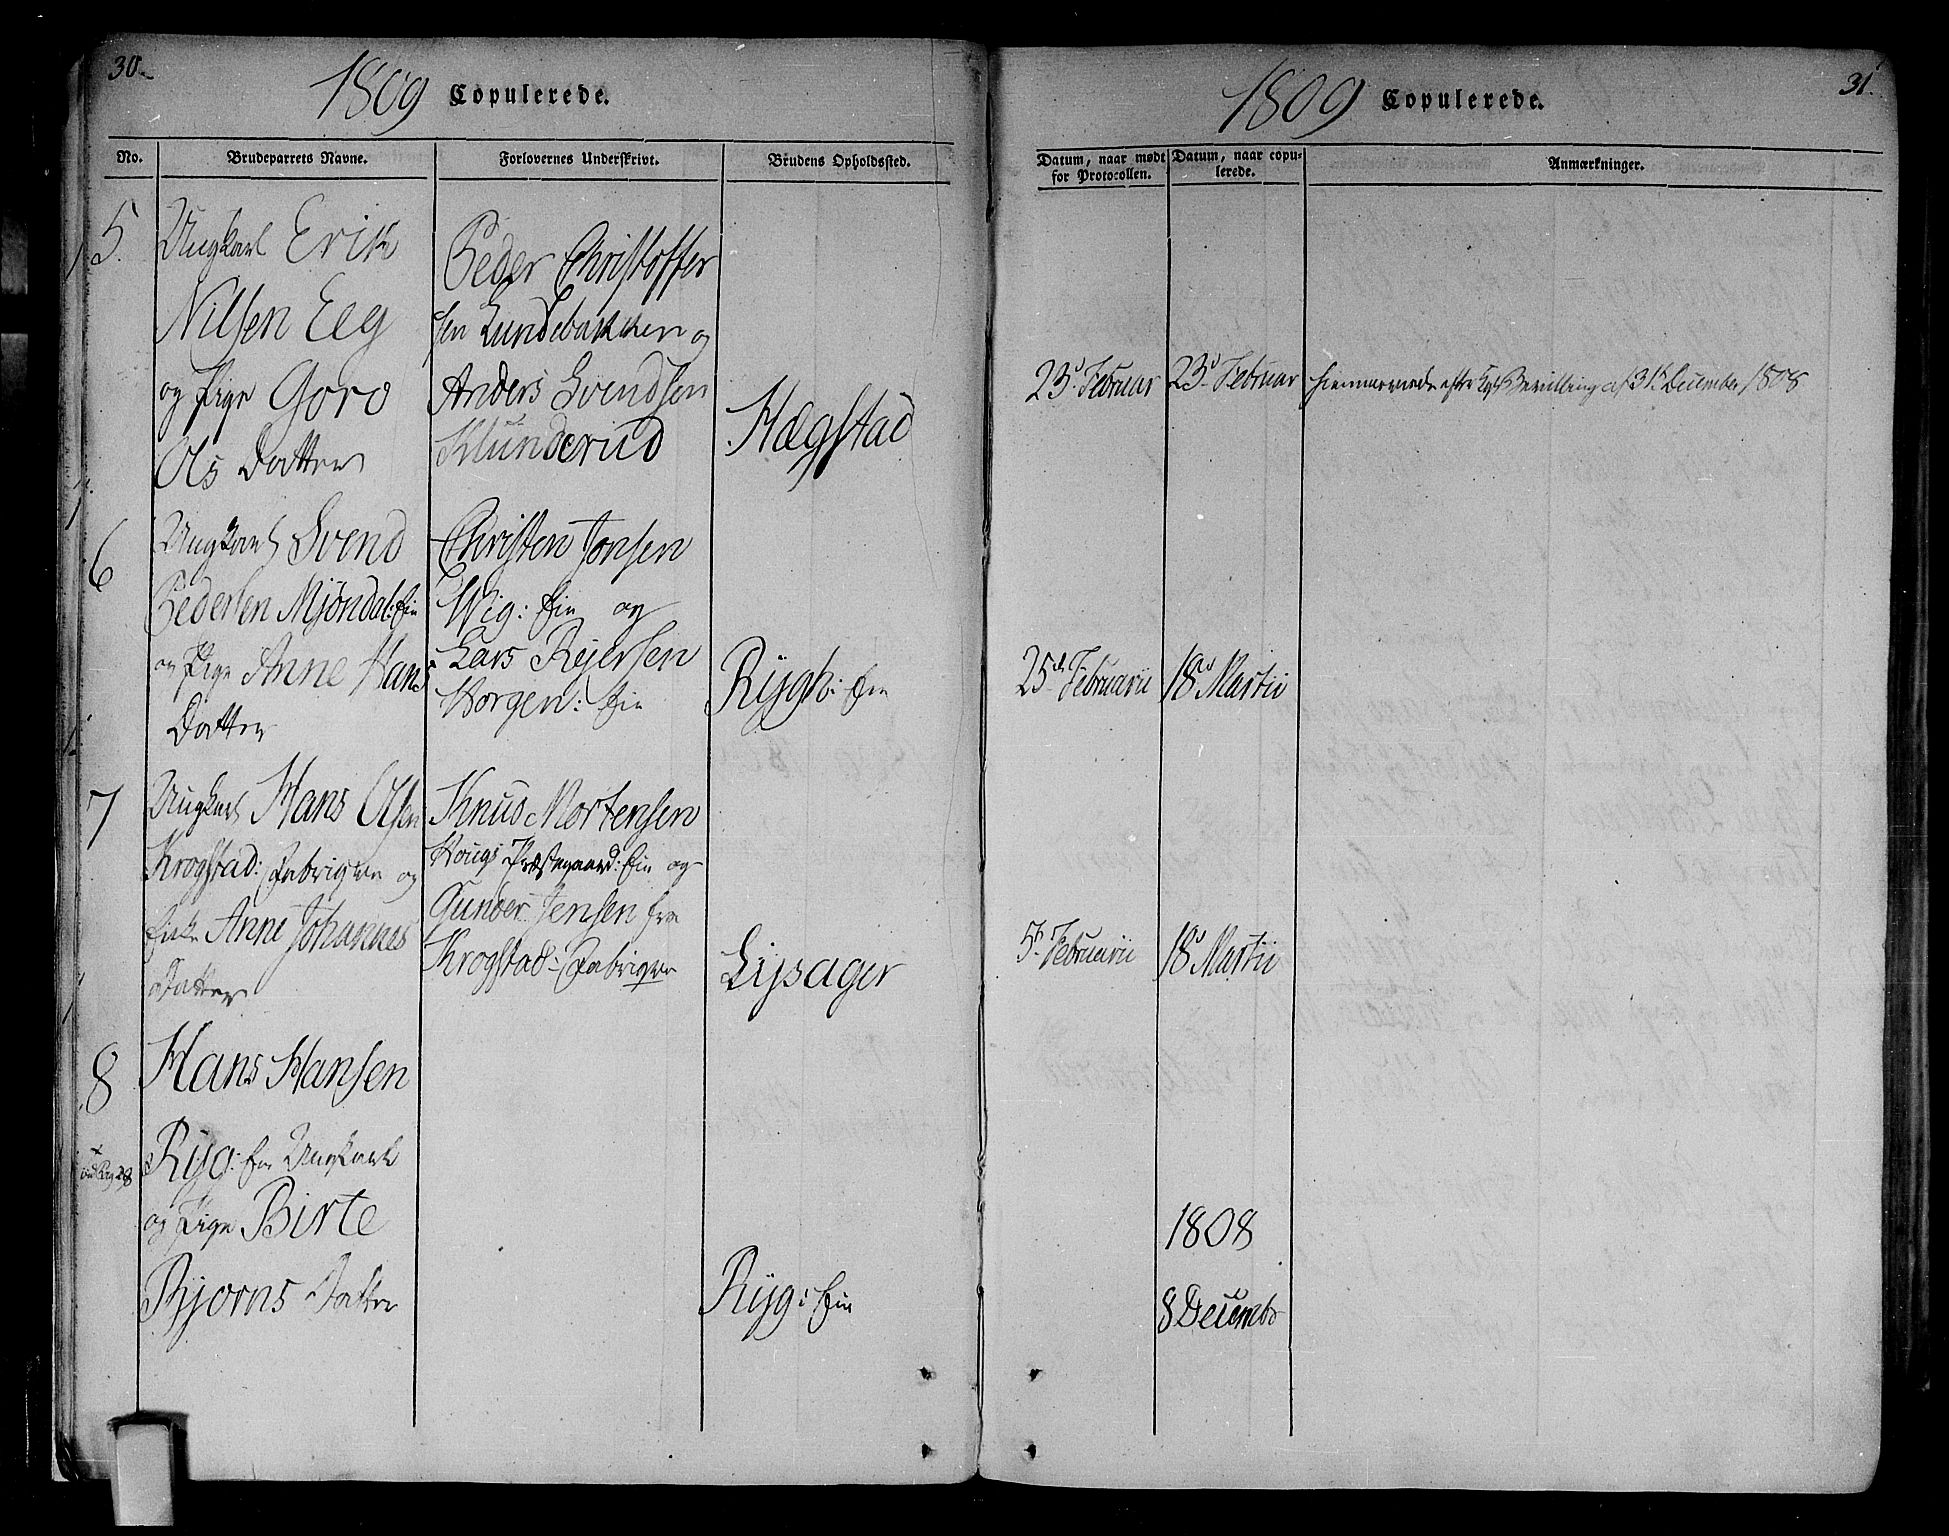 30.
1809 Copulerede.
No.
Brudeparrets Navne.
Forlovernes Underskrivt.
Brudens Opholdssted.
5.
Ungkarl Erik
Nilsen Eeg
og Pige Goro
Ols Datter
Peder Christoffer
sen Lundebakken og
Anders Svendsen
Klunderud
Hægstad
6
Ungkarl Svend
Pedersen Mjöndal: Eie
og Pige Anne Hans
Datter
Christen Jonsen
Wig: Eie og
Lars Rejersen
Horgen: Eie
Rygh: Eie
7
Ungkarl Hans Olsen
Krogstad: Fabrique og
Enke Anne Johannes
Datter
Knud Mortensen
Hougs Præstegaard: Eie og
Gunder Jensen fra
Krogstad: Fabrique
Lijsager
8
Hans Hansen
Ryg: Eie Ungkarl
og Pige Birte
Bjorns Datter
Ryg: Eie
31.
1809 Copulerede.
Datum, naar mødt
for Protocollen.
Datum, naar copu-
lerede.
Anmærkninger.
23d Februar
23d Februar
Hiemmeviede efter Kgl Bevilling af 31te December 1808
25de Februarii
18de Martii
5te Februarii
18d Martii
1808
8 Decembr